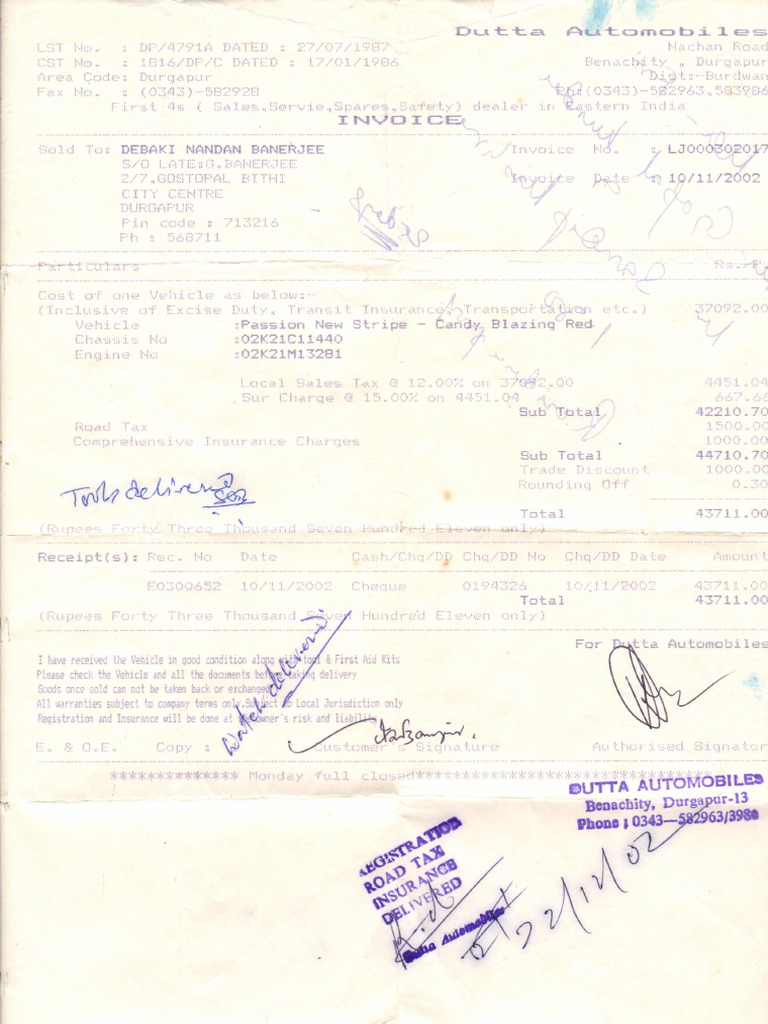 Dutta Automobiles
LST No. : DP/4791A DATED : 27/07/1987 Nachan Road
CST No. : 1816/DP/C DATED : 17/01/1986 Benachity , Durgapur
Area Code: Durgapur Dist:-Burdwan
Fax No. : (0343)-582928 Ph:(0343)-582963,583986
First 4s ( Sales,Servie,Spares,Safety) dealer in Eastern India
INVOICE
Sold To: DEBAKI NANDAN BANERJEE Invoice No. : LJ000302017
S/O LATE:G.BANERJEE
2/7,GOSTOPAL BITHI Invoice Date : 10/11/2002
CITY CENTRE
DURGAPUR
Pin code : 713216
Ph : 568711
Particulars Rs. P.
Cost of one Vehicle as below:-
(Inclusive of Excise Duty, Transit Insurance, Transportation etc.) 37092.00
Vehicle :Passion New Stripe - Candy Blazing Red
Chassis No :02K21C11440
Engine No :02K21M13281
Local Sales Tax @ 12.00% on 37092.00 4451.04
Sur Charge @ 15.00% on 4451.04 667.66
Sub Total 42210.70
Road Tax 1500.00
Comprehensive Insurance Charges 1000.00
Sub Total 44710.70
Trade Discount 1000.00
Rounding Off 0.30
Tools delivered
Total 43711.00
(Rupees Forty Three Thousand Seven Hundred Eleven only)
Receipt(s): Rec. No Date Cash/Chq/DD Chq/DD No Chq/DD Date Amount
E0300652 10/11/2002 Cheque 0194326 10/11/2002 43711.00
Total 43711.00
(Rupees Forty Three Thousand Seven Hundred Eleven only)
For Dutta Automobiles
I have received the Vehicle in good condition along with tool & First Aid Kits
Please check the Vehicle and all the documents before taking delivery
Goods once sold can not be taken back or exchanged
All warranties subject to company terms only.Subject to Local Jurisdiction only
Registration and Insurance will be done at owner's risk and liability
Watch delivered
E. & O.E. Copy : Customer's Signature Authorised Signator
************** Monday full closed********************************
DUTTA AUTOMOBILES
Benachity, Durgapur-13
Phone : 0343-582963/3986
REGISTRATION
ROAD TAX
INSURANCE
DELIVERED
Dutta Automobiles
22/12/02